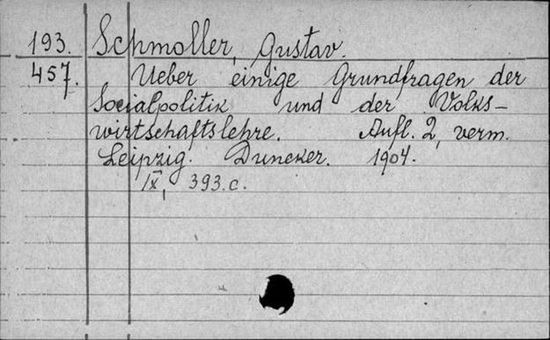 193. Schmoller, Gustav.
457. Ueber einige Grundfragen der
Socialpolitik und der Volks-
wirtschaftslehre. Aufl. 2, verm.
Leipzig. Duncker. 1904.
IX, 393.c.